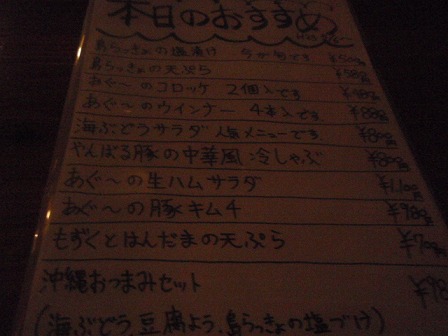 本日のおすすめ
島らっきょの塩漬け 今が旬です
島らっきょの天ぷら
あぐ〜のコロッケ 2個入です
あぐ〜のウインナー 4本入です
海ぶどうサラダ 人気メニューです
やんばる豚の中華風 冷しゃぶ
あぐ〜の生ハムサラダ
あぐ〜の豚キムチ
もずくとはんだまの天ぷら
沖縄おつまみセット
(海ぶどう、豆腐よう、島らっきょの塩づけ)